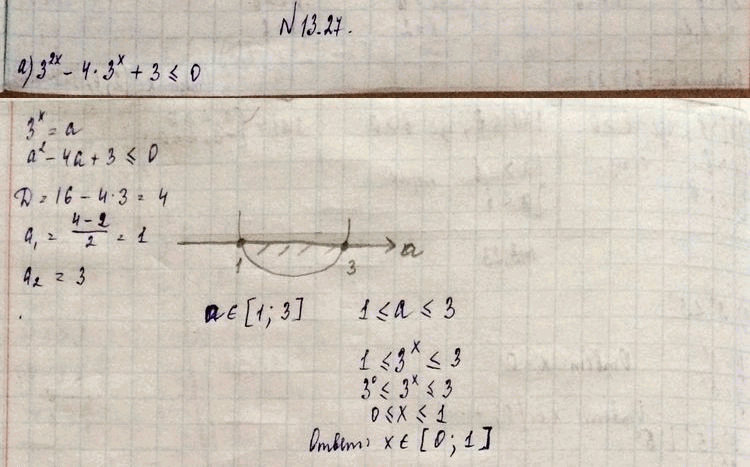 N 13.27.
а) 3²ˣ - 4 · 3ˣ + 3 ≤ 0
3ˣ = a
a² - 4a + 3 ≤ 0
D = 16 - 4·3 = 4
a₁ = (4-2)/2 = 1
a₂ = 3
1 3 a
a ∈ [1; 3]
1 ≤ a ≤ 3
1 ≤ 3ˣ ≤ 3
3⁰ ≤ 3ˣ ≤ 3
0 ≤ x ≤ 1
Ответ: x ∈ [0; 1]